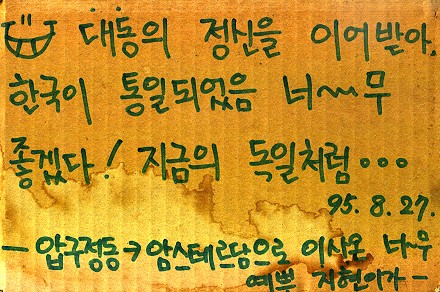 대동의 정신을 이어받아,
한국이 통일되었음 너~~무
좋겠다! 지금의 독일처럼...
95. 8. 27.
- 압구정동→암스테르담으로 이사온 너~무
예쁜 지현이가 -